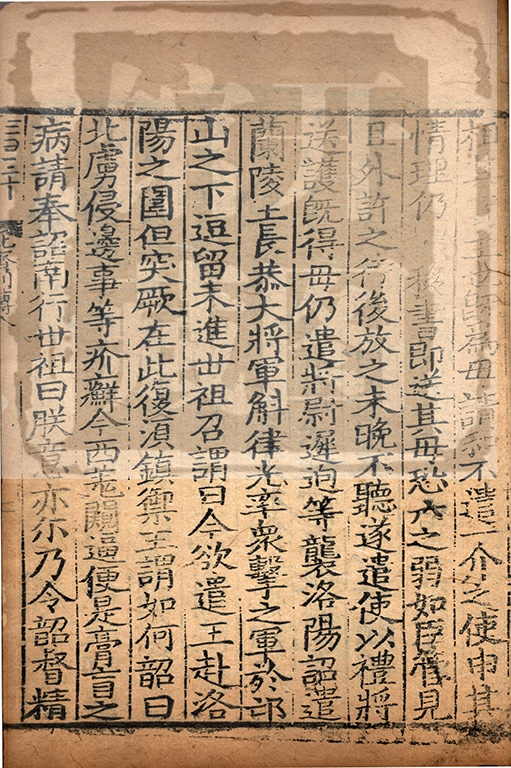 相　　王也既為母請和不遣一介之使申其
情理仍　移書即送其母恐示之弱如臣管見
且外許之待後放之未晚不聽遂遣使以禮將
送護既得母仍遣將尉遲迥等襲洛陽詔遣
蘭陵王長恭大將軍斛律光率衆擊之軍於邙
山之下逗留未進世祖召謂曰今欲遣王赴洛
陽之圍但突厥在此復須鎮禦王謂如何韶曰
北虜侵邊事等疥癬今西羌闚逼便是膏肓之
病請奉詔南行世祖曰朕意亦尓乃令韶督精
三百二十